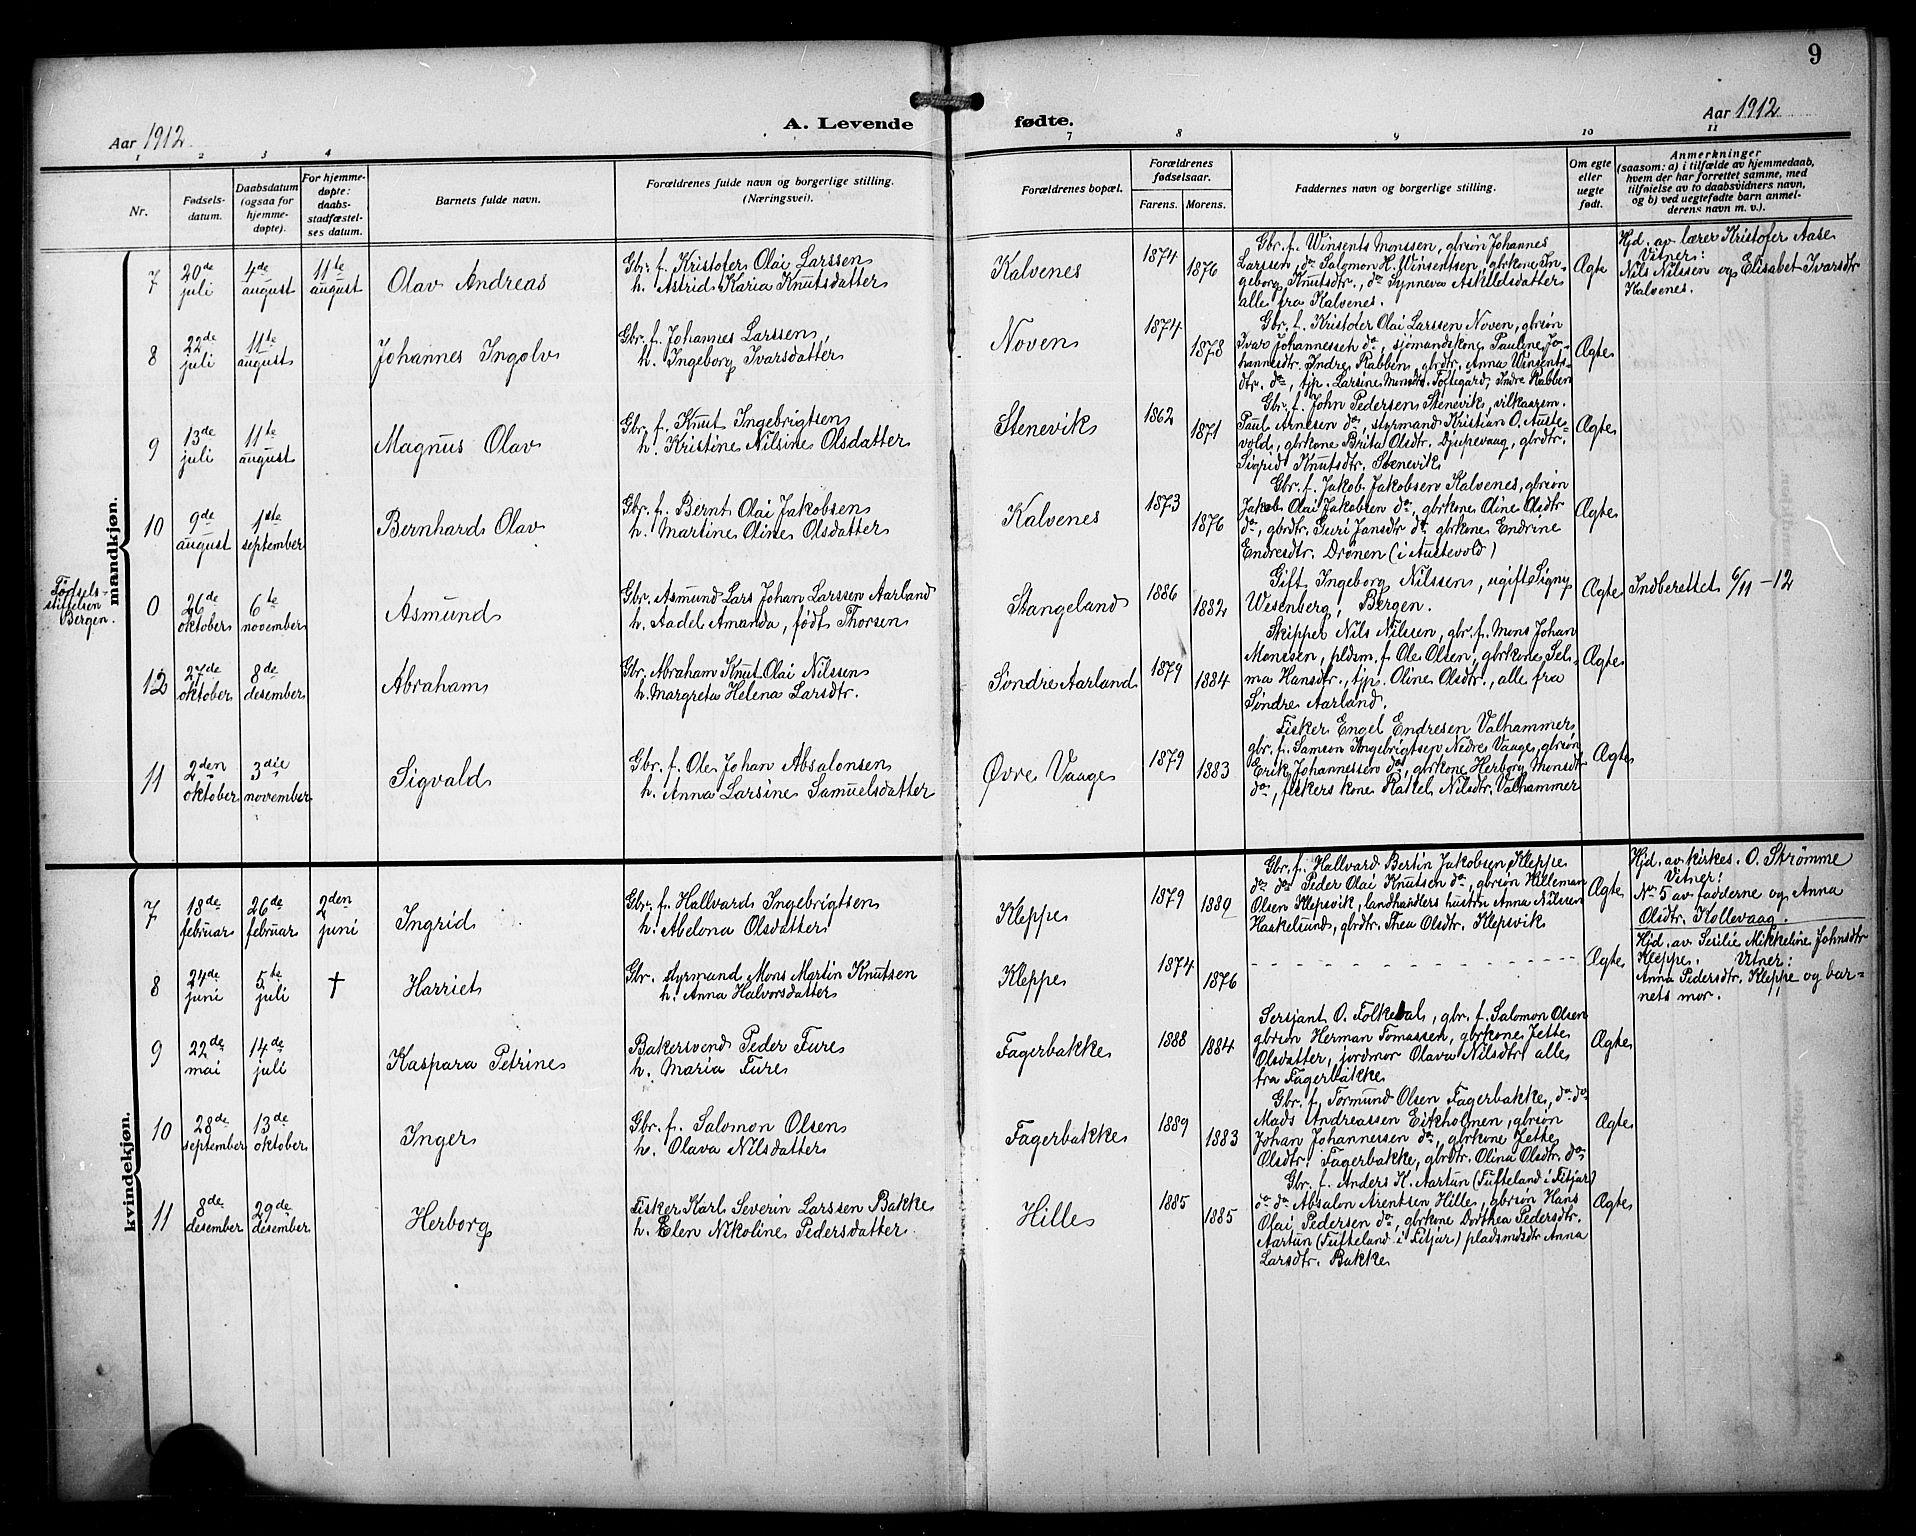 9
Aar 1912
A. Levende fødte.
Aar 1912
1 2 3 4 7 8 9 10 11
Nr.
Fødsels-
datum.
Daabsdatum
(ogsaa for
hjemme-
døpte).
For hjemme-
døpte:
daabs-
stadfæstel-
ses datum.
Barnets fulde navn.
Forældrenes fulde navn og borgerlige stilling.
(Næringsvei).
Forældrenes bopæl.
Forældrenes
fødselsaar.
Farens. Morens.
Faddernes navn og borgerlige stilling.
Om egte
eller
uegte
født.
Anmerkninger
(saasom: a) i tilfælde av hjemmedaab,
hvem der har forrettet samme, med
tilføielse av to daabsvidners navn,
og b) ved uegtefødte barn anmel-
derens navn m. v.).
mandkjøn.
7
20de
juli
4de
august
11te
august
Olav Andreas
Gbr. f. Kristofer Olai Larssen
h. Astrid Karia Knutsdatter
Kalvenes
1874
1876
Gbr. f. Winsents Monssen, gbrsøn Johannes
Larssen, do Salomon H. Winsentsen, gbrkone In-
geborg Knutsdtr., do Synneva Askildsdatter
alle fra Kalvenes.
Ægte
Hjd. av lærer Kristofer Aase
Vitner:
Nils Nilssen og Elisabet Ivarsdtr
Kalvenes.
8
22de
juli
11te
august
Johannes Ingolv
Gbr. f. Johannes Larssen,
h. Ingeborg Ivarsdatter
Noven
1874
1878
Gbr. f. Kristofer Olai Larssen Noven, gbrsøn
Ivar Johannessen do, sjømandskone Pauline Jo-
hannesdtr. Indre Rabben, gbrdtr. Anna Winsents-
dtr. do, tjp. Larsine Monsdtr. Toftegard, Indre Rabben
Ægte
9
13de
juli
11te
august
Magnus Olav
Gbr. f. Knut Ingebrigtsen
h. Kristine Nilsine Olsdatter
Stenevik
1862
1871
Gbr. f. John Pedersen Stenevik, vilkaarsm.
Paul Arnesen do, styrmand Kristian O. Auste-
vold, gbrkone Brita Olsdtr. Djupevaag, gbrdtr.
Sigrid Knutsdtr. Stenevik
Ægte
10
9de
august
1ste
september
Bernhard Olav
Gbr. f. Bernt Olai Jakobsen
h. Martine Oline Olsdatter
Kalvenes
1873
1876
Gbr. f. Jakob Jakobsen Kalvenes, gbrsøn
Jakob Olai Jakobsen do, gbrkone Oline Olsdtr
do, gbrdtr. Guri Jansdtr do, gbrkone Endrine
Endresdtr. Drønen (i Austevold)
Ægte
Fødsels-
stiftelsen
Bergen.
0
26de
oktober
6te
november
Asmund
Gbr. Asmund Lars Johan Larssen Aarland
h. Aadel Amanda, født Thorsen
Stangeland
1886
1882
Gift Ingeborg Nilssen, ugift Signy
Wesenberg, Bergen.
Ægte
Indberettet 6/11 -12
12
27de
oktober
8de
desember
Abraham
Gbr. Abraham Knut Olai Nilssen
h. Margreta Helena Larsdtr.
Søndre Aarland
1879
1884
Skipper Nils Nilssen, gbr. f. Mons Johan
Monssen, pldsm. f. Ole Olsen, gbrkone Sel-
ma Hansdtr., tjp. Oline Olsdtr., alle fra
Søndre Aarland.
Ægte
11
2den
oktober
3die
november
Sigvald
Gbr. f. Ole Johan Absalonsen
h. Anna Larsine Samuelsdatter
Øvre Vaage
1879
1883
Fisker Engel Endresen Valhammer,
gbr. f. Samson Ingebrigtsen Nedre Vaage, gbrsøn
Erik Johannessen do, gbrkone Herborg Monsdtr
do, fiskers kone Rakel Nilsdtr. Valhammer
Ægte
kvindekjøn.
7
18de
februar
26de
februar
2den
juni
Ingrid
Gbr. f. Hallvard Ingebrigtsen
h. Abelona Olsdatter
Kleppe
1879
1889
Gbr. f. Hallvard Bertin Jakobsen Kleppe
do do Peder Olai Knutsen do, gbrsøn Hilleman
Olsen Klepsvik, landhandlers hustru Anna Nilssen
Haakelsund, gbrdtr. Thea Olsdtr. Klepsvik
Ægte
Hjd. av kirkes. O. Strømme
Vitner:
No 5 av fadderne og Anna
Olsdtr. Kollevaag.
8
24de
juni
5te
juli
†
Harriet
Gbr. styrmand Mons Martin Knutsen
h. Anna Halvorsdatter
Kleppe
1874
1876
- - - - - - - - - - - - - -
Ægte
Hjd. av Serilie Mikkeline Johnsdtr
Kleppe. Vitner:
Anna Pedersdtr. Kleppe og bar-
nets mor.
9
22de
mai
14de
juli
Kaspara Petrine
Bakersvend Peder Fure
h. Maria Fure
Fagerbakke
1888
1884
Sersjant O. Folkedal, gbr. f. Salomon Olsen
gbrsøn Herman Tomassen, gbrkone Jette
Olsdatter, jordmor Olava Nilsdtr. alle
fra Fagerbakke
Ægte
10
28de
september
13de
oktober
Inger
Gbr. f. Salomon Olsen
h. Olava Nilsdatter
Fagerbakke
1889
1883
Gbr. f. Tormund Olsen Fagerbakke, do do
Mads Andreassen Eikholmen, gbrsøn
Johan Johannessen do, gbrkone Jette
Olsdtr. Fagerbakke, gbrdtr. Olina Olsdtr. do
Ægte
11
8de
desember
29de
desember
Herborg
Fisker Karl Severin Larssen Bakke
h. Elen Nikoline Pedersdatter
Hille
1885
1885
Gbr. f. Anders K. Aartun (Tufteland i Fitjar)
do do Absalon Arentsen Hille, gbrsøn Hans
Olai Pedersen do, gbrkone Dorthea Pedersdtr.
Aartun (Tufteland i Fitjar) pladsmdsdtr Anna
Larsdtr. Bakke
Ægte